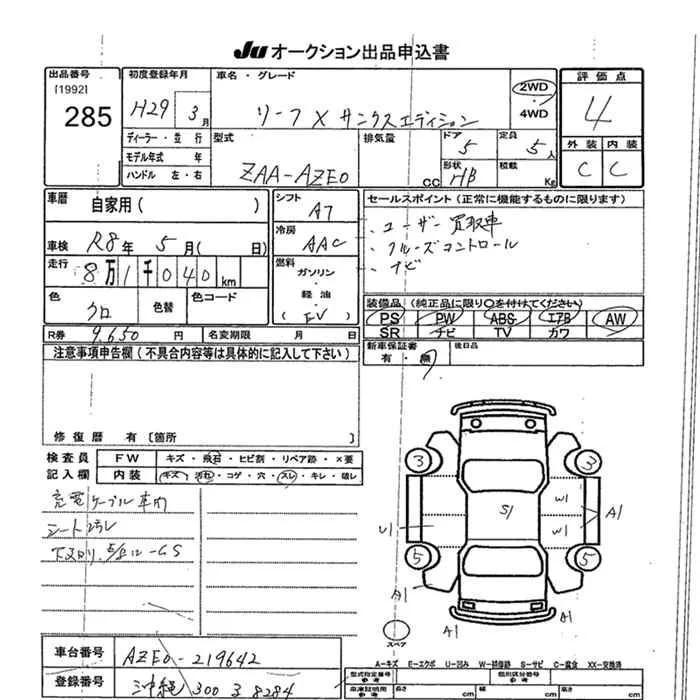 Ju オークション出品申込書
出品番号 初度登録年月 車名・グレード 評価点
[1992]
285 H29 3月 リーフ X サンクスエディション 2WD 4WD 4
ディーラー・並行 型式 排気量 ドア 定員 外装 内装
5 5人
モデル年式 年 形状 積載 C C
ハンドル 左・右 ZAA-AZE0 CC HB Kg
車歴 自家用( ) シフト AT セールスポイント(正常に機能するものに限ります)
・ユーザー買取車
車検 R8年 5月( 日) 冷房 AAC ・クルーズコントロール
・ナビ
走行 8万1千040km 燃料 ガソリン・軽油・(EV)
色 クロ 色替 色コード 装備品(純正品に限り〇を付けてください)
PS PW ABS エアB AW
R券 9,650円 名変期限 月 日 SR ナビ TV カワ
注意事項申告欄(不具合内容等は具体的に記入して下さい) 新車保証書 後日品
有・無
修復歴 有〔箇所 〕
検査員 FW キズ・飛石・ヒビ割・リペア跡・×要
記入欄 内装 キズ・汚れ・コゲ・穴・スレ・キレ・破レ
充電ケーブル車内
シート汚レ
3 3
W1
S1 A1
U1 W1
5 5
A1
A1 A1
スペア
車台番号 AZE0-219642
A-キズ E-エクボ U-凹み W-補修跡 S-サビ C-腐食 XX-交換済
登録番号 沖縄 300 る 8284
型式指定番号 参考 類別区分番号 参考
長さ cm 幅 cm 高さ cm